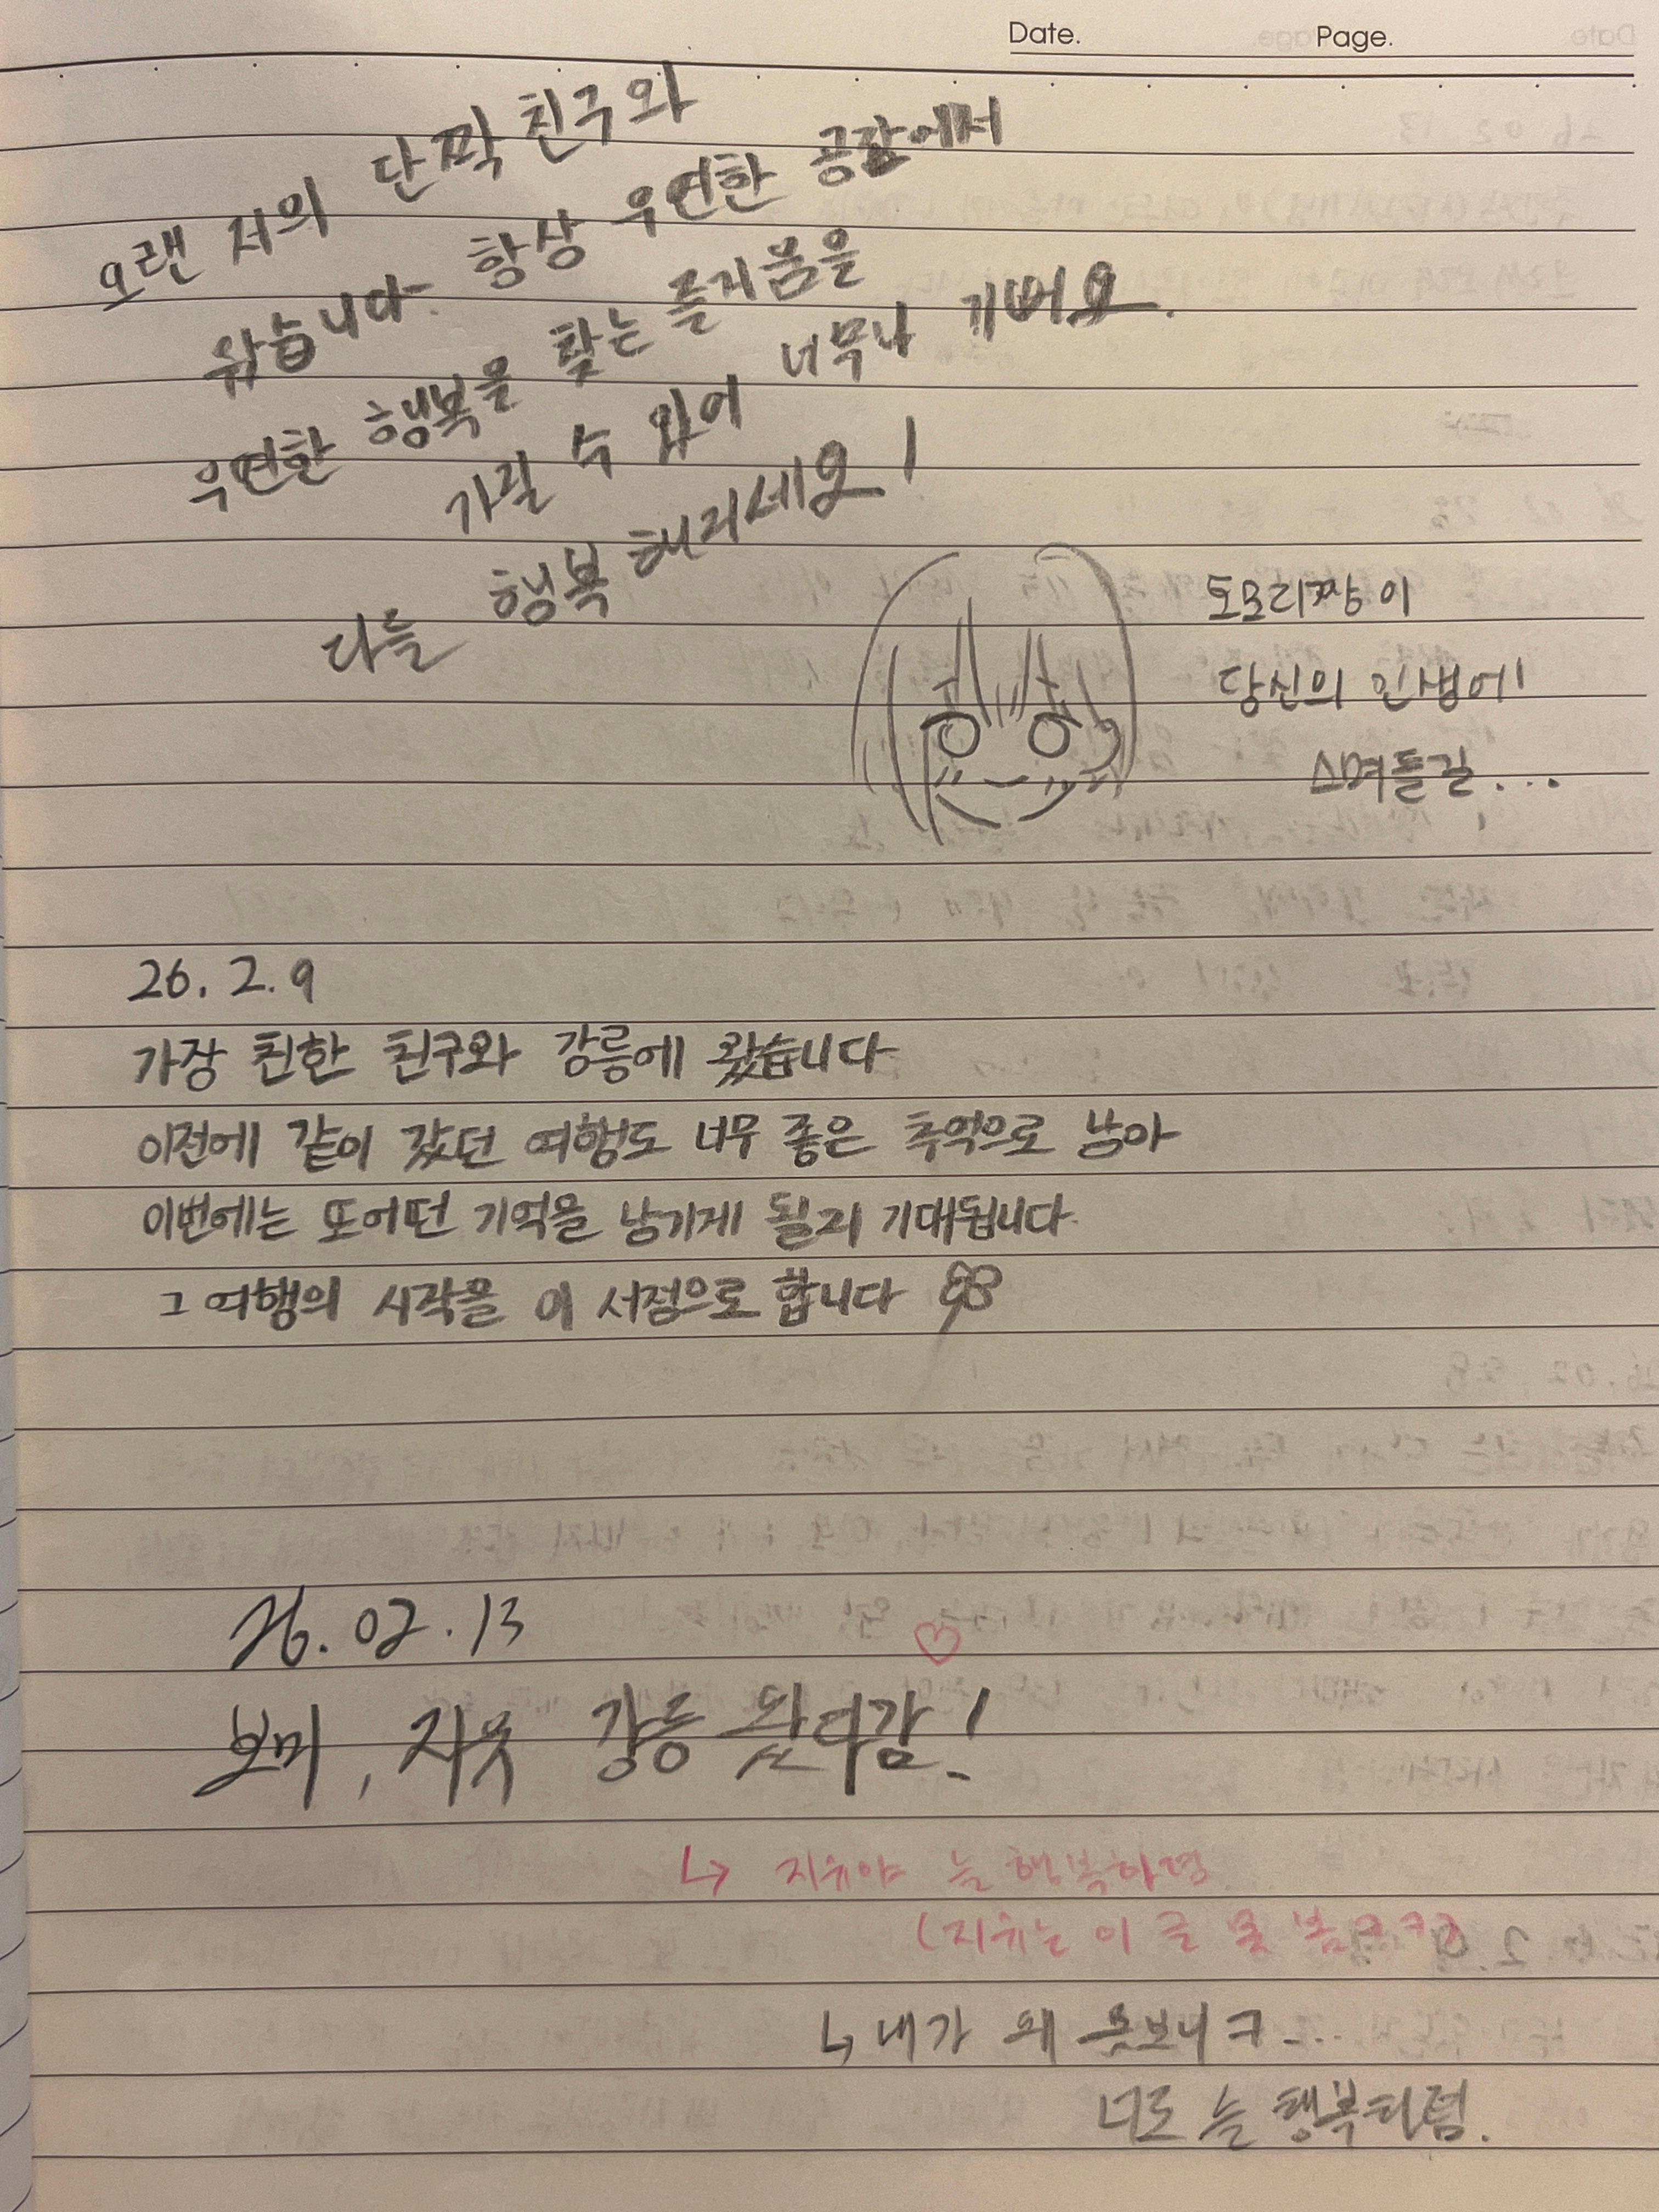 Date. Page.
오랜 저의 단짝 친구와
왔습니다. 항상 우연한 공간에서
우연한 행복을 찾는 즐거움을
가질 수 있어 너무나 기뻐요.
다들 행복해지세요!
토모리짱이
당신의 인생에
스며들길...
26. 2. 9
가장 친한 친구와 강릉에 왔습니다
이전에 같이 갔던 여행도 너무 좋은 추억으로 남아
이번에는 또 어떤 기억을 남기게 될지 기대됩니다.
그 여행의 시작을 이 서점으로 합니다
26. 02. 13
보미, 지윳 강릉 왔다감!
↳ 지유야 늘 행복하렴
(지유는 이 글 못 봄ㅋㅋ)
↳ 내가 왜 못보니ㅋ....
너도 늘 행복하렴.